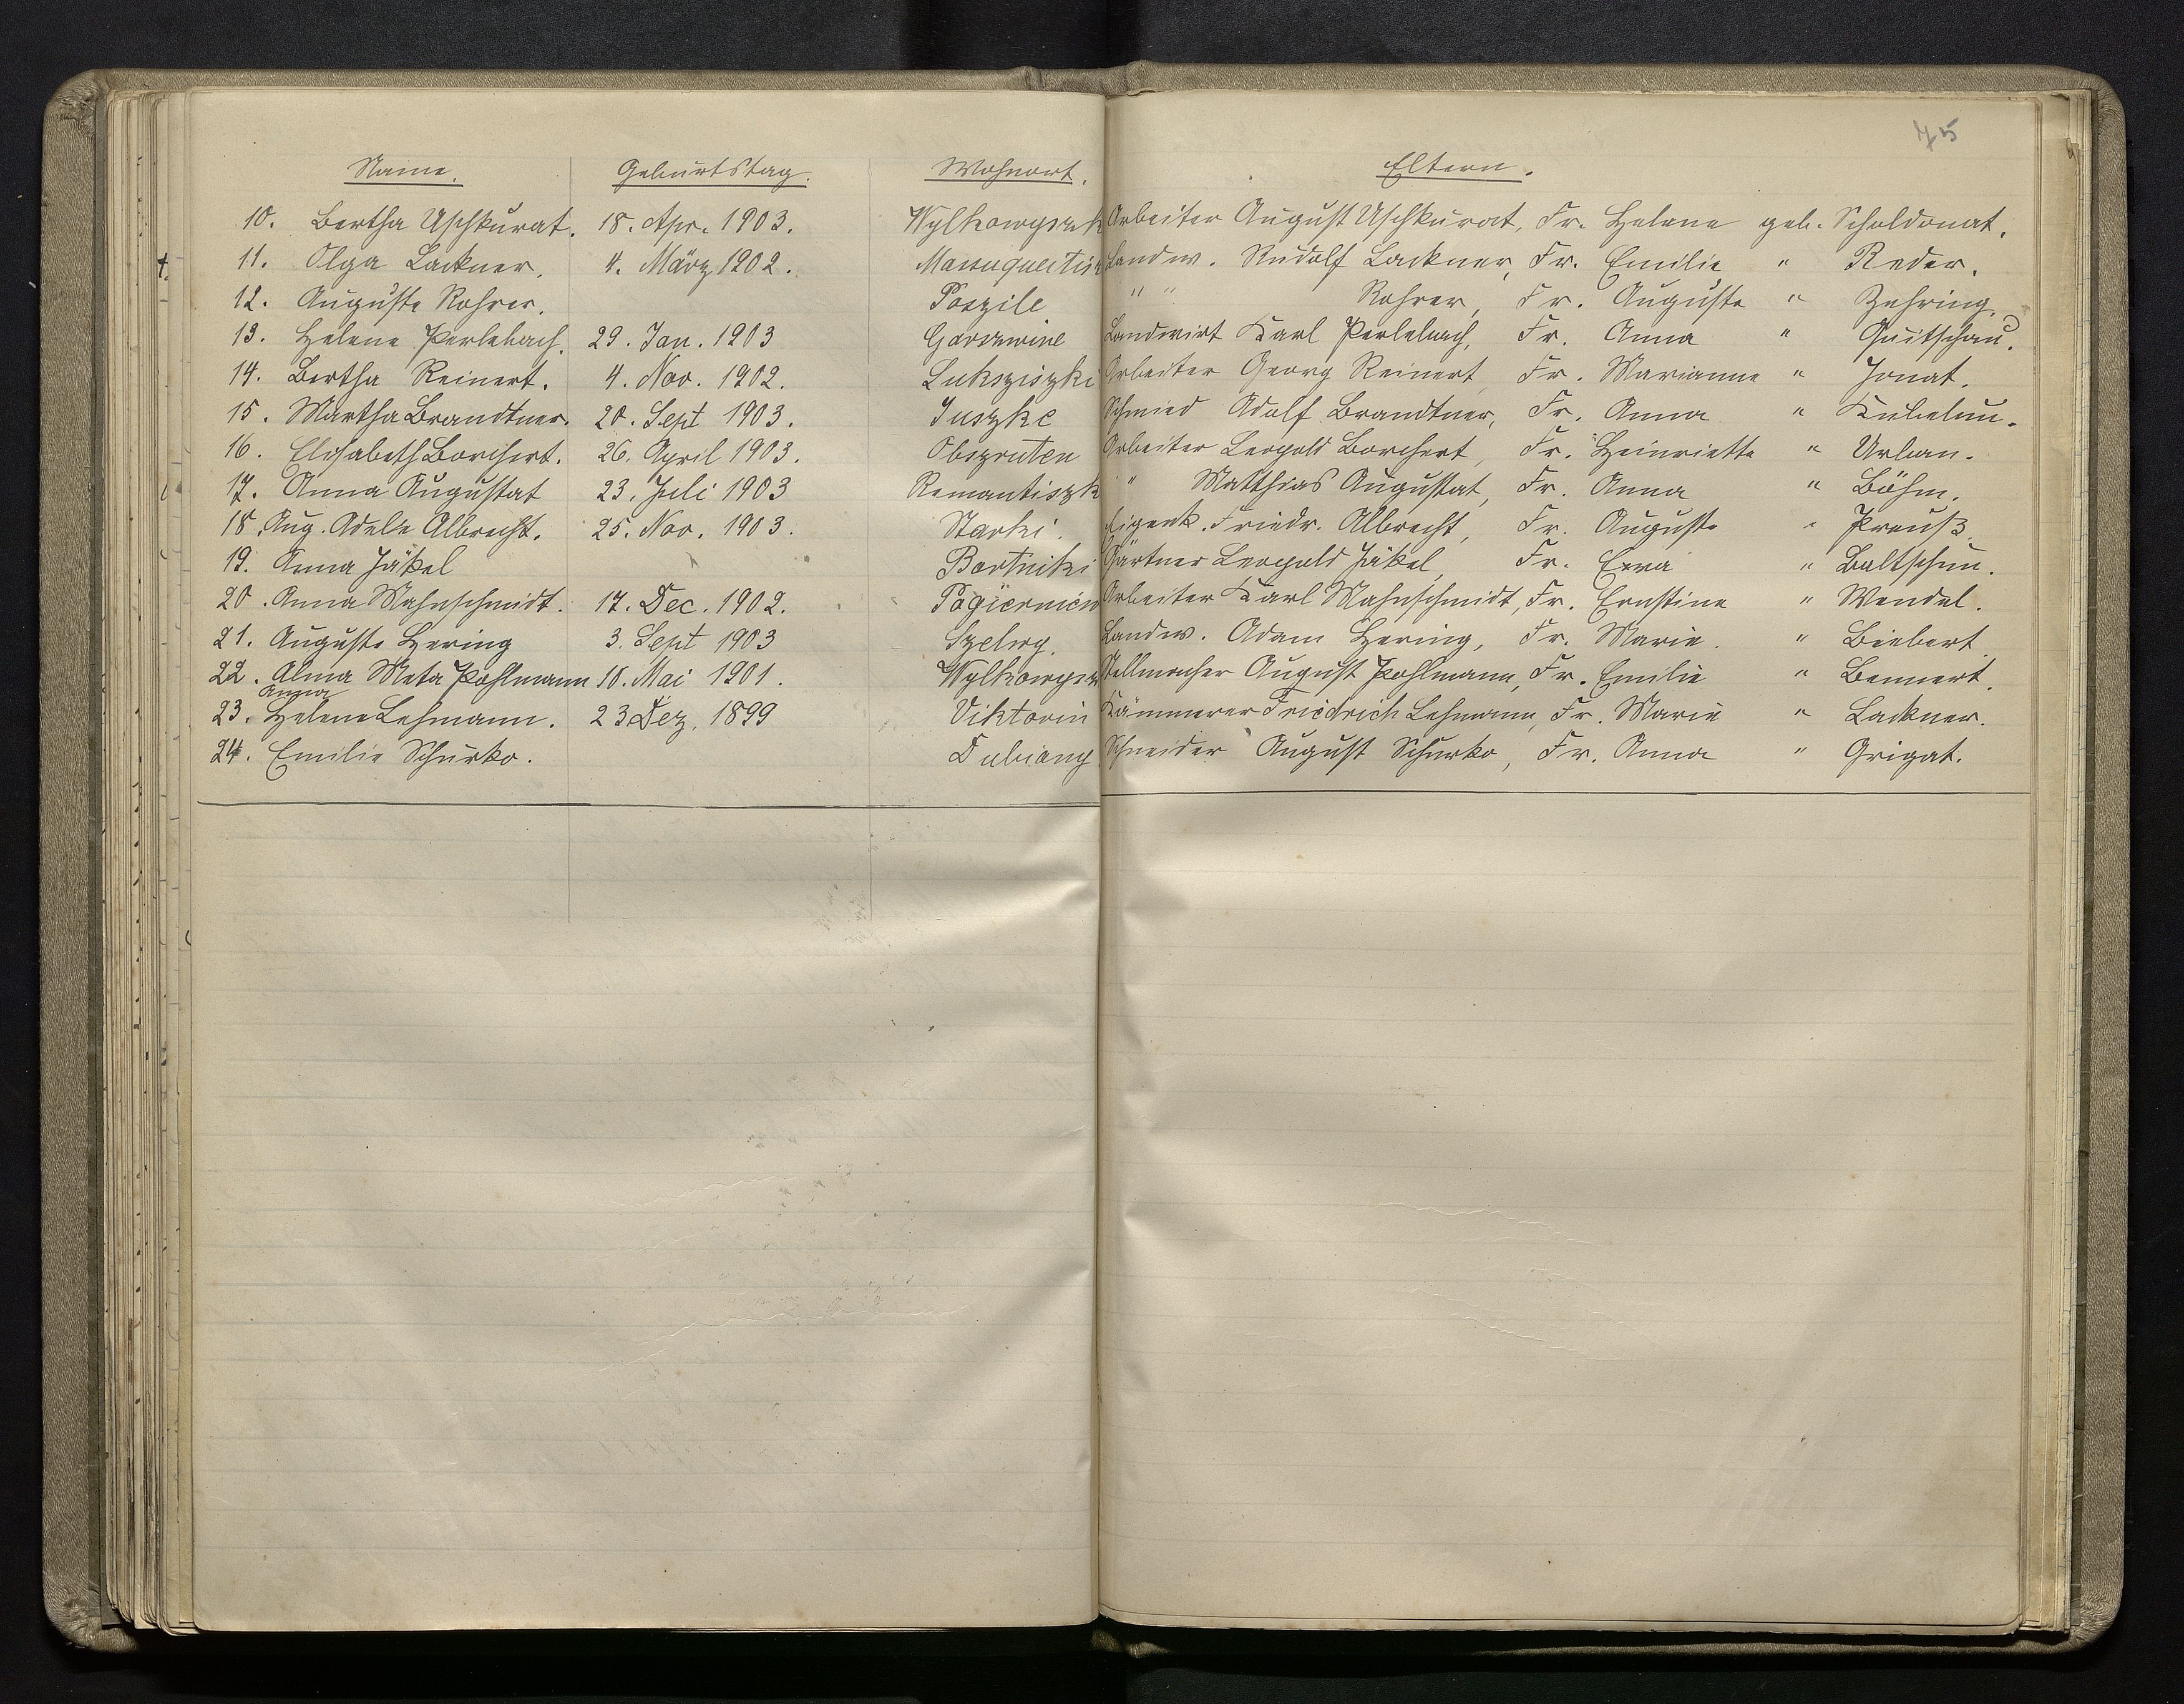 75
Name. Geburtstag. Wohnort. Eltern.
10. Bertha Uschkurat. 18. Apr. 1903. Wylkowyszk Arbeiter August Uschkurat, Fr. Helene geb. Scholdonat.
11. Olga Lackner. 4. März 1902. Landw. Rudolf Lackner, Fr. Emilie " Reder.
12. Auguste Rohrer. Poszile " " Rohrer, Fr. Auguste " Zehring.
13. Helene Perlebach. 29. Jan. 1903 Garszwine Landwirt Karl Perlebach, Fr. Anna " Quitschau.
14. Bertha Reinert. 4. Nov. 1902. Luksziszki Arbeiter Georg Reinert, Fr. Marianne " Jonat.
15. Martha Brandtner. 20. Sept 1903. Juszke Schmied Adolf Brandtner, Fr. Anna " Kubelun.
16. Elisabeth Borchert. 26. April 1903. Obszruten Arbeiter Leopold Borchert, Fr. Heinriette " Urban.
17. Anna Augustat 23. Juli 1903 Remantiszk " Matthias Augustat, Fr. Anna " Böhm.
18. Aug. Adele Albrecht. 25. Nov. 1903. Starki. Eigenk. Friedr. Albrecht, Fr. Auguste " Preuß.
19. Anna Jäkel Bartniki Gärtner Leopold Jäkel Fr. Ewa " Baltschun.
20. Anna Mahnschmidt. 17. Dec. 1902. Arbeiter Karl Mahnschmidt, Fr. Ernstine " Wendel.
21. Auguste Hering 3. Sept 1903 Szelwy. Landw. Adam Hering, Fr. Marie. " Biebert.
22. Alma Meta Pohlmann 18. Mai 1901. Wylkowysz Stellmacher August Pohlmann, Fr. Emilie " Bennert.
23. Helene Lehmann. 23 Dez. 1899 Viktorin Kämmerer Friedrich Lehmann, Fr. Marie " Lackner.
24. Emilie Schurko. Dubiany Schneider August Schurko, Fr. Anna " Grigat.